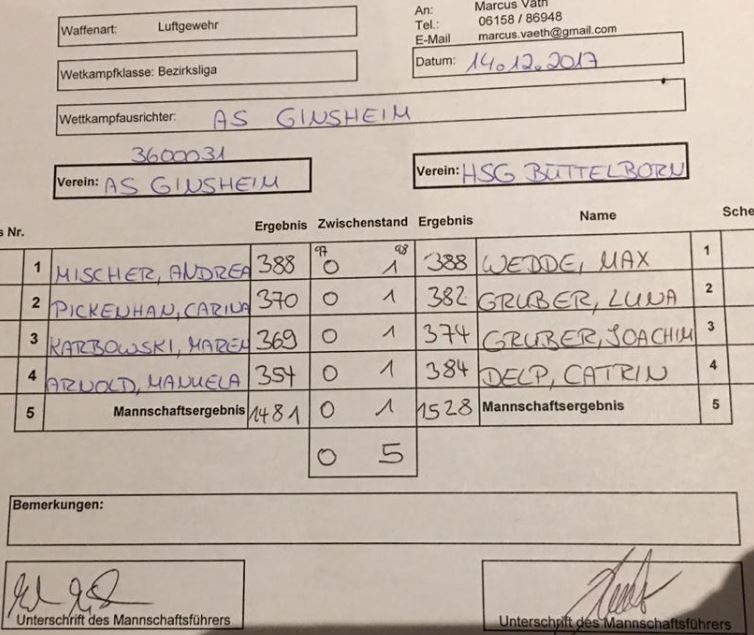 An: Marcus Väth
Waffenart: Luftgewehr
Tel.: 06158 / 86948
E-Mail marcus.vaeth@gmail.com
Wetkampfklasse: Bezirksliga
Datum: 14.12.2017
Wettkampfausrichter: AS GINSHEIM
3600031
Verein: AS GINSHEIM Verein: HSG BÜTTELBORN
s Nr. Ergebnis Zwischenstand Ergebnis Name Sche
97 98
1 MISCHER, ANDREA 388 0 1 388 WEDDE, MAX 1
2 PICKENHAN, CARINA 370 0 1 382 GRUBER, LUNA 2
3 KARBOWSKI, MAREN 369 0 1 374 GRUBER, JOACHIM 3
4 ARNOLD, MANUELA 354 0 1 384 DELP, CATRIN 4
5 Mannschaftsergebnis 1481 0 1 1528 Mannschaftsergebnis 5
0 5
Bemerkungen:
Unterschrift des Mannschaftsführers Unterschrift des Mannschaftsführers